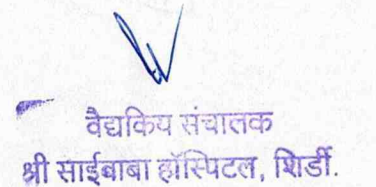 वैद्यकिय संचालक
श्री साईबाबा हॉस्पिटल, शिर्डी.